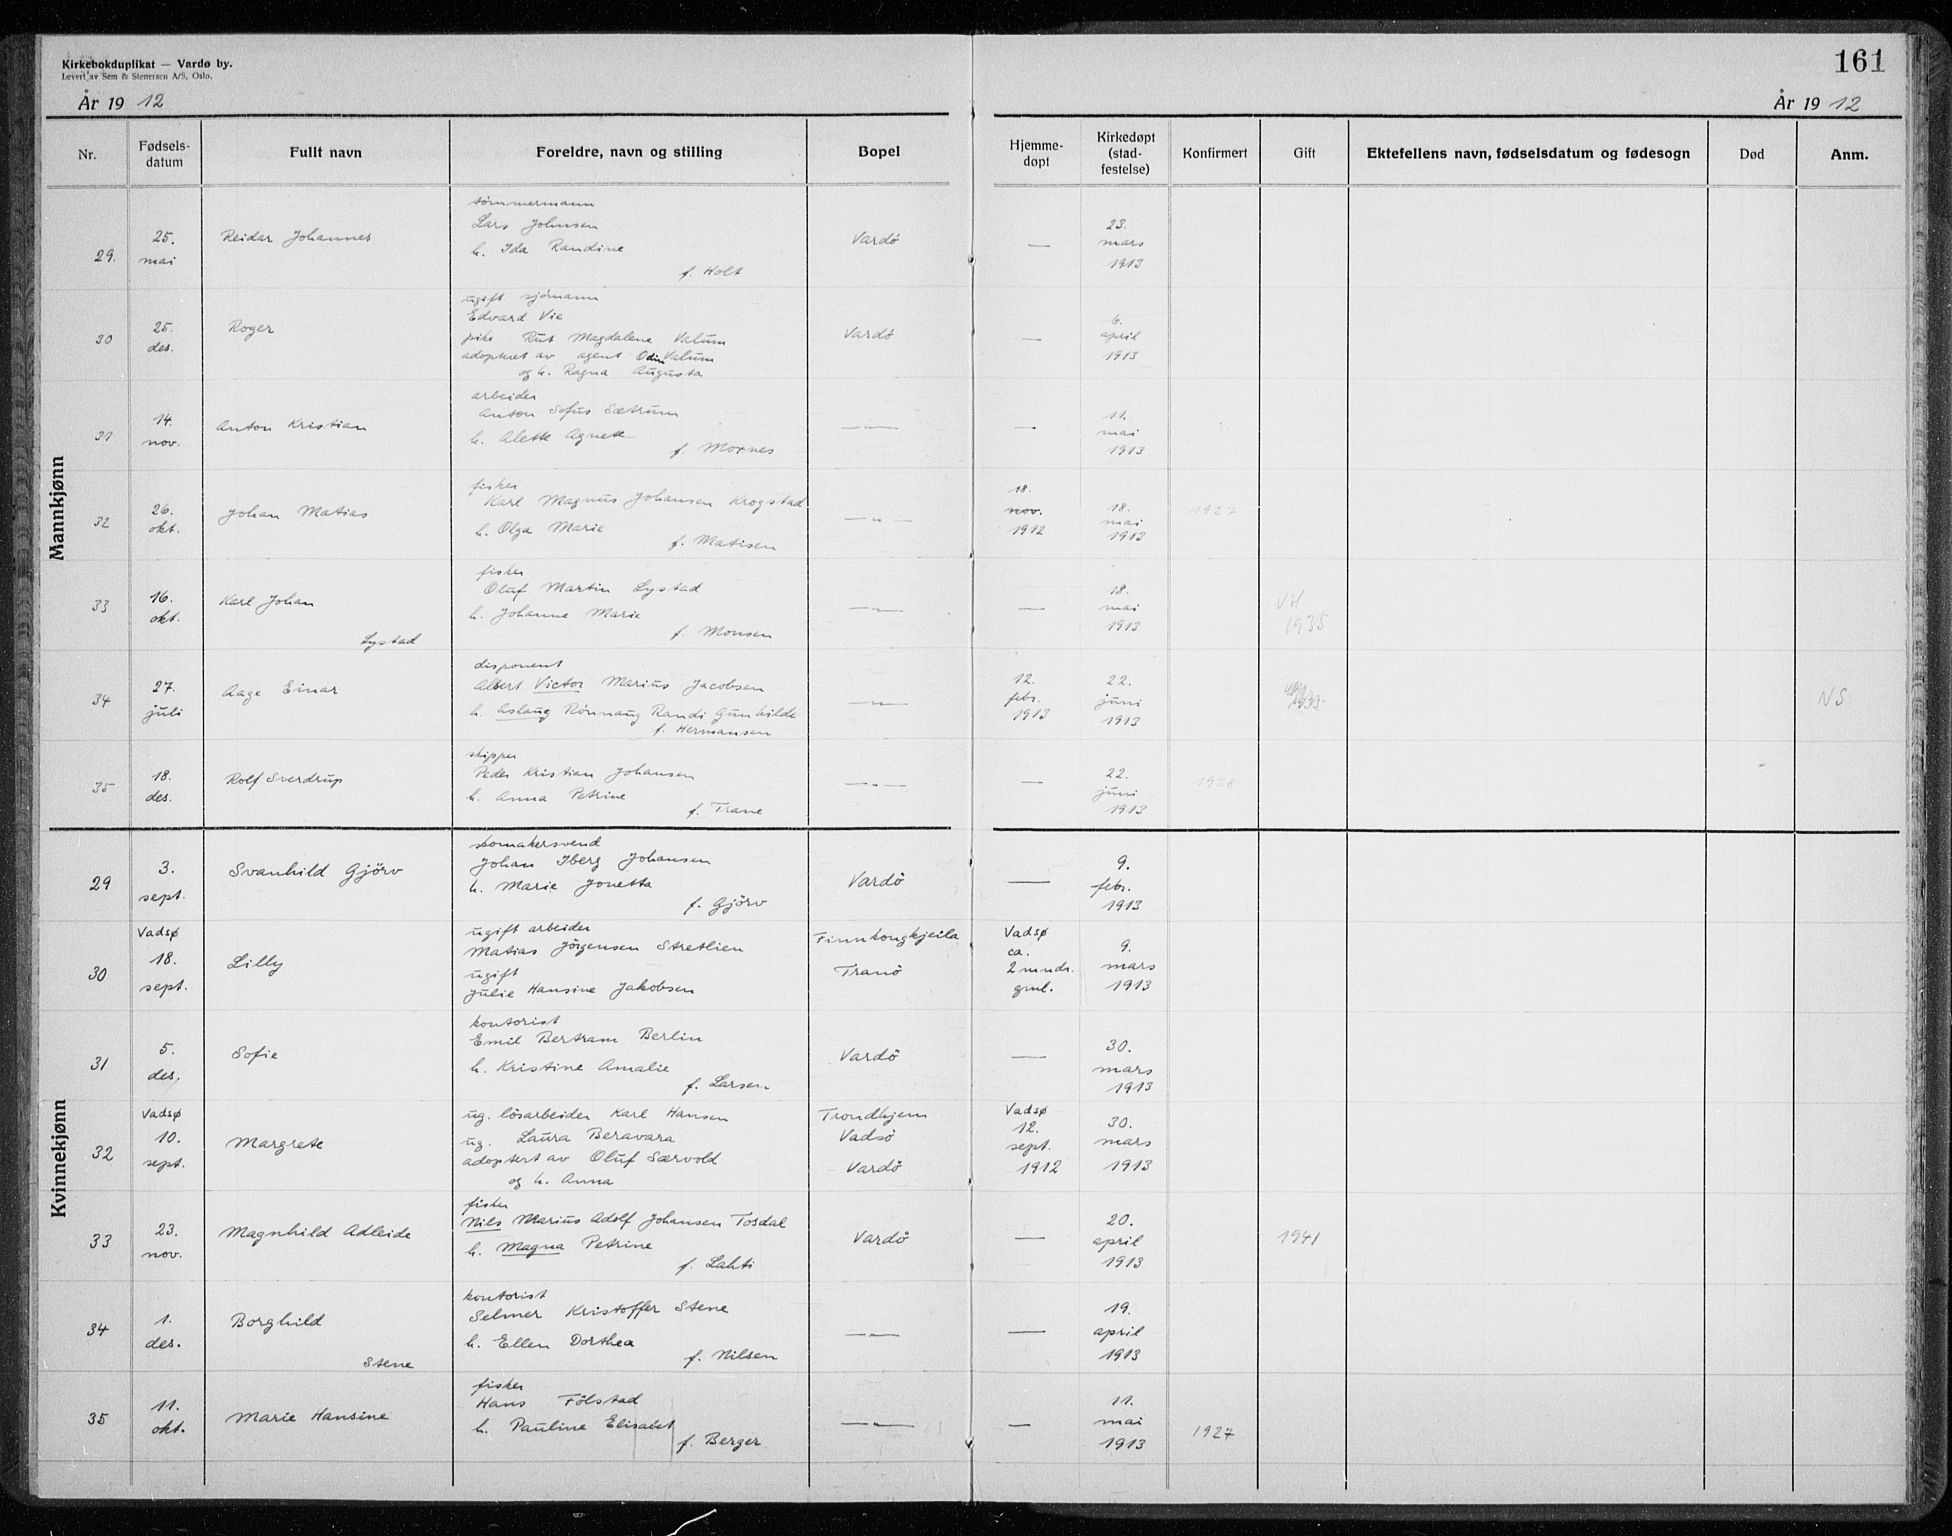 Kirkebokduplikat — Vardø by.
Levert av Sem & Stenersen A/S, Oslo.
161
År 19 12
År 19 12
Nr. Fødsels-datum Fullt navn Foreldre, navn og stilling Bopel Hjemme-døpt Kirkedøpt (stad-festelse) Konfirmert Gift Ektefellens navn, fødselsdatum og fødesogn Død Anm.
Mannkjønn
29. 25. mai Reidar Johannes
tømmermann
Lars Johnsen
h. Ida Randine
f. Holt
Vardö — 23. mars 1913
30 25. des. Roger
ugift sjömann
Edvard Vie
pike Rut Magdalene Valum
adoptert av agent Odin Valum
og h. Ragna Augusta
Vardö — 6. april 1913
31 14. nov. Anton Kristian
arbeider
Anton Sofus Sætrum
h. Alette Agnete
f. Mornes
—"— — 11. mai 1913
32 26. okt. Johan Matias
fisker
Karl Magnus Johansen Krogstad
h. Olga Marie
f. Matisen
—"— 18. nov. 1912 18. mai 1913 1927
33 16. okt. Karl Johan
Lystad
fisker
Oluf Martin Lystad
h. Johanne Marie
f. Monsen
—"— — 18. mai 1913 VH 1935
34 27. juli Aage Einar
disponent
Albert Victor Marius Jacobsen
h. Aslaug Rönnaug Randi Gunhilde
f. Hermansen
—"— 12. febr. 1913 22. juni 1913 1935 NS
35 18. des. Rolf Sverdrup
skipper
Peder Kristian Johansen
h. Anna Petrine
f. Trane
—"— — 22. juni 1913 1928
Kvinnekjønn
29 3. sept. Svanhild Gjörv
skomakersvend
Johan Iberg Johansen
h. Marie Jonetta
f. Gjörv
Vardö — 9. febr. 1913
30 Vadsø 18. sept. Lilly
ugift arbeider
Matias Jörgensen Stretlien
ugift
Julie Hansine Jakobsen
Finnkongkjeila
Tranö
Vadsø ca. 2 mndr. gml. 9. mars 1913
31 5. des. Sofie
kontorist
Emil Bertram Berlin
h. Kristine Amalie
f. Larsen
Vardö — 30. mars 1913
32 Vadsø 10. sept. Margrete
ug. lösarbeider Karl Hansen
ug. Laura Beravara
adoptert av Oluf Særvold
og h. Anna
Trondhjem
Vadsö
Vardö
Vadsø 12. sept. 1912 30. mars 1913
33 23. nov. Magnhild Adleide
fisker
Nils Marius Adolf Johansen Tosdal
h. Magna Petrine
f. Lahti
Vardö — 20. april 1913 1941
34 1. des. Borghild
Stene
kontorist
Selmer Kristoffer Stene
h. Ellen Dorthea
f. Nilsen
—"— — 19. april 1913
35 11. okt. Marie Hansine
fisker
Hans Fölstad
h. Pauline Elisabet
f. Berger
—"— — 11. mai 1913 1927